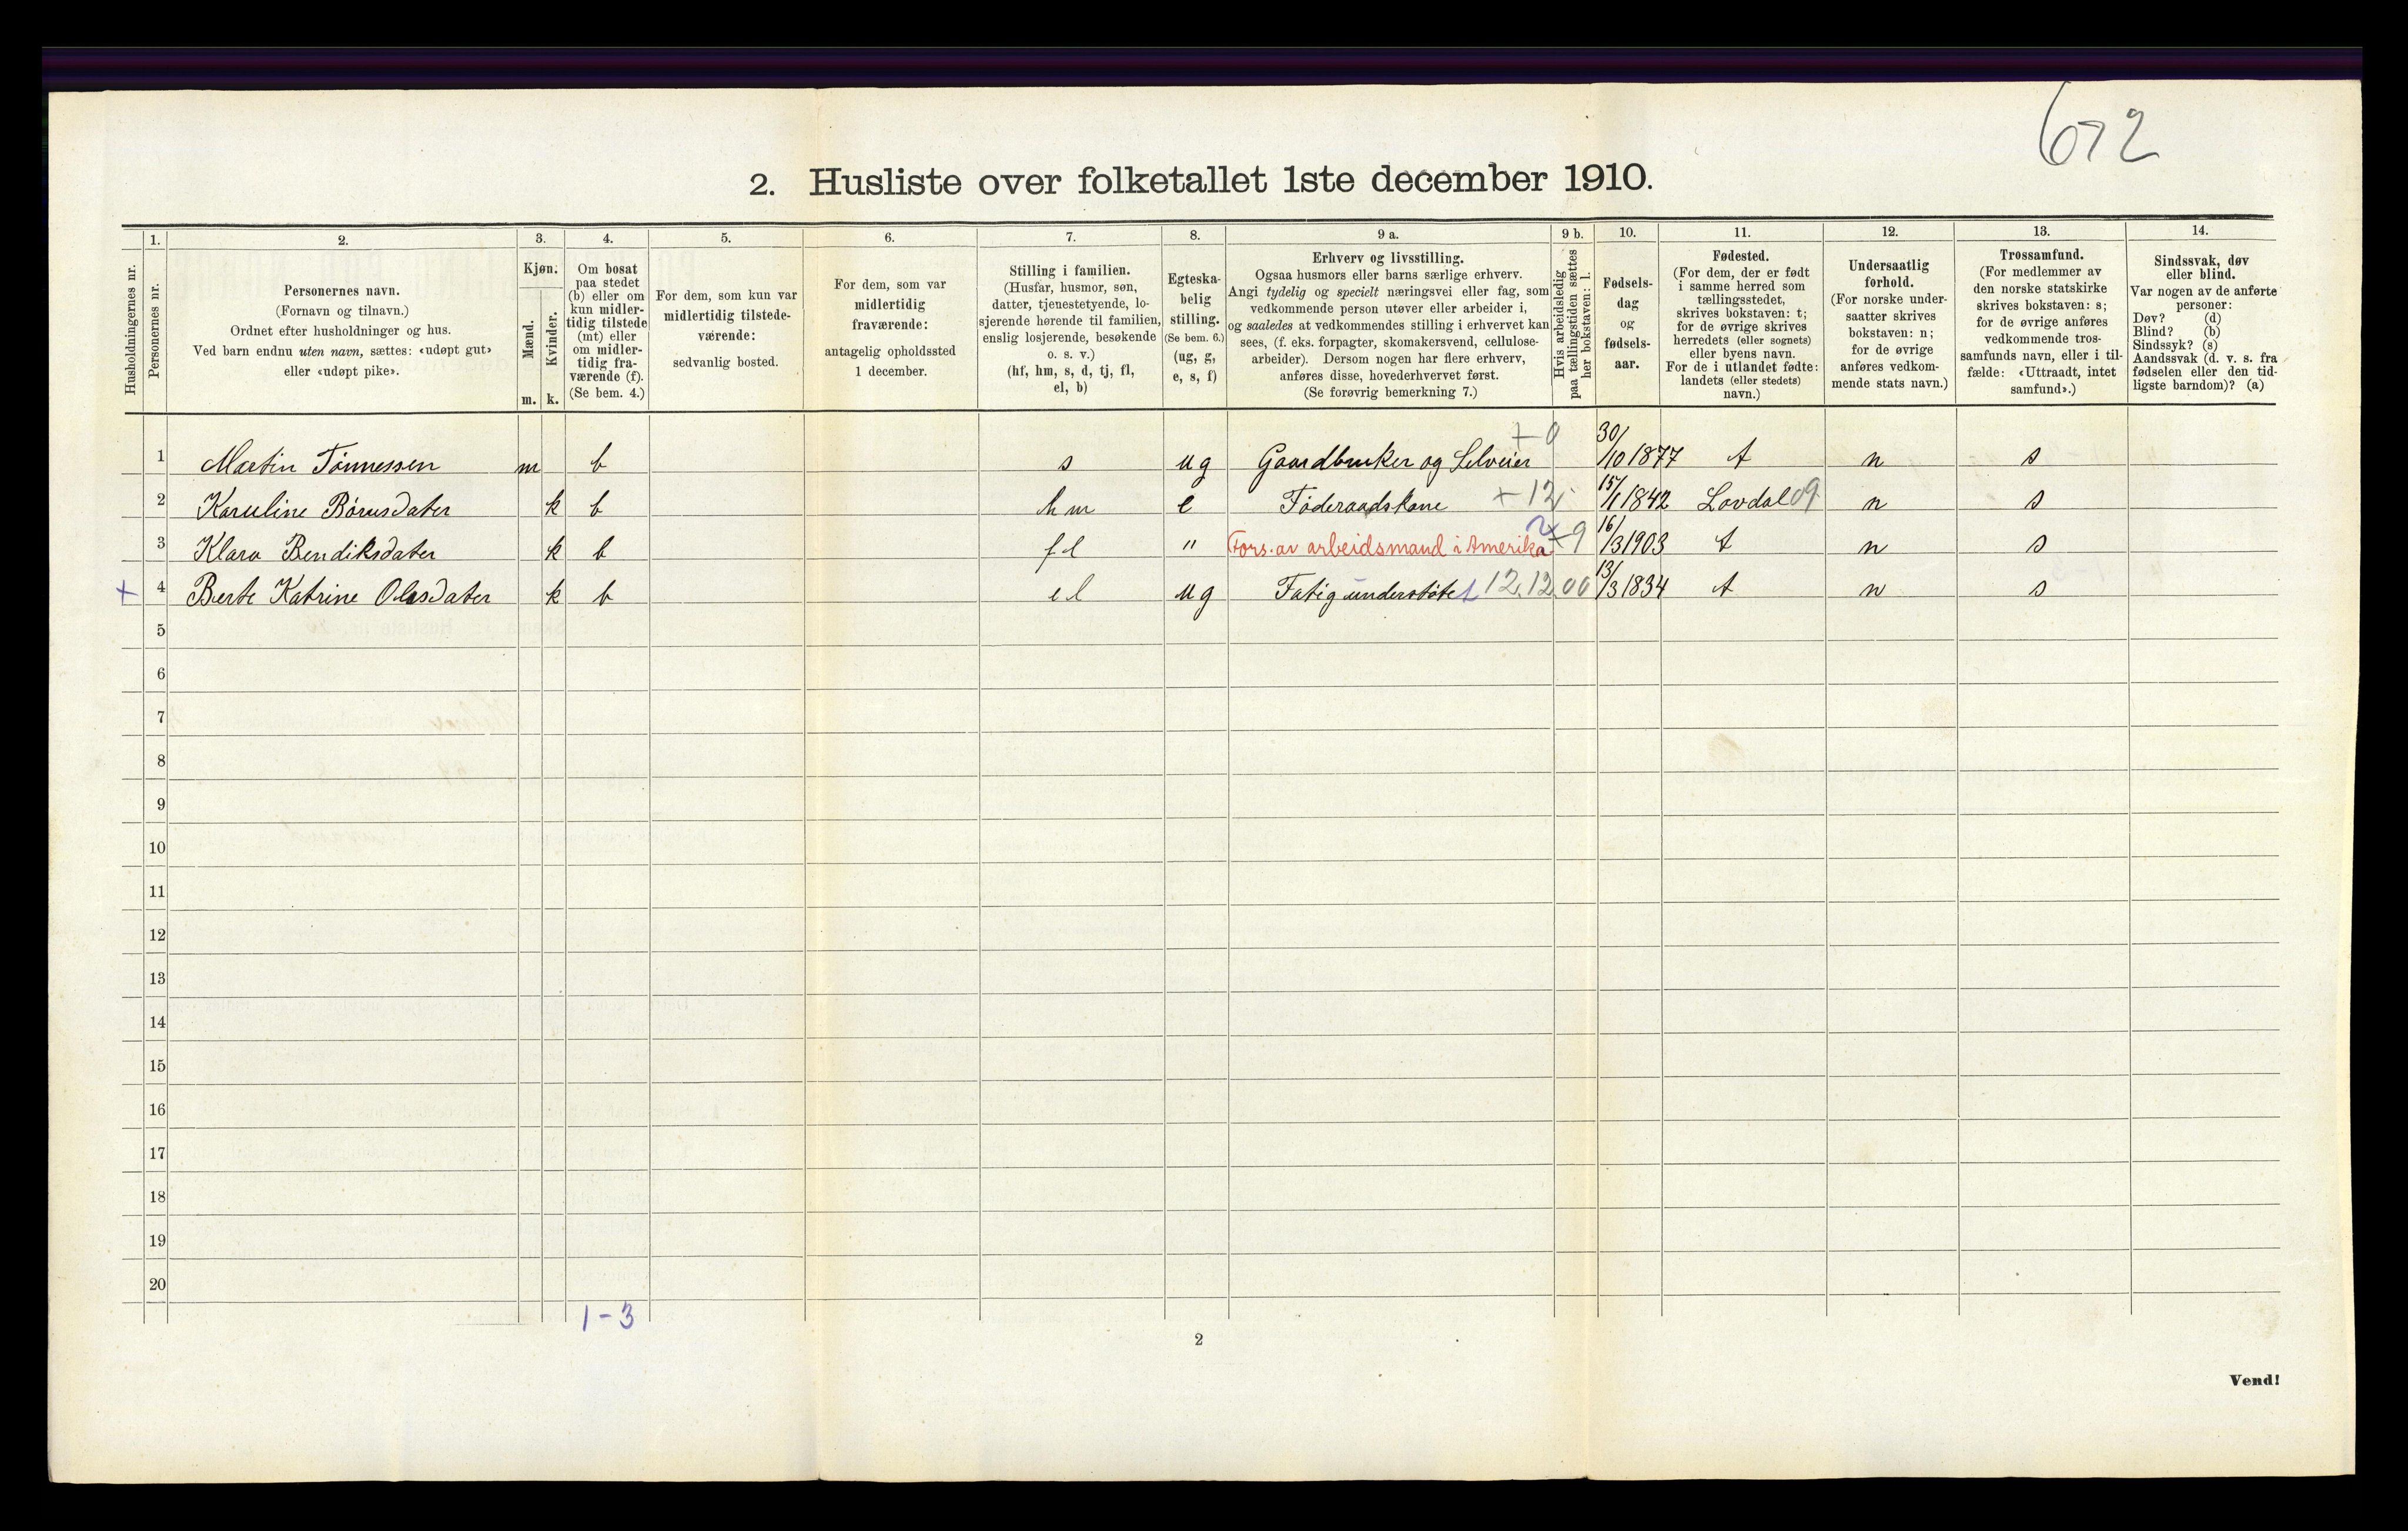 672
2. Husliste over folketallet 1ste december 1910.
Husholdningernes nr.
1.
Personernes nr.
2.
Personernes navn.
(Fornavn og tilnavn.)
Ordnet efter husholdninger og hus.
Ved barn endnu uten navn, sættes: «udøpt gut»
eller «udøpt pike».
3.
Kjøn.
Mænd.
Kvinder.
m. k.
4.
Om bosat
paa stedet
(b) eller om
kun midler-
tidig tilstede
(mt) eller
om midler-
tidig fra-
værende (f).
(Se bem. 4.)
5.
For dem, som kun var
midlertidig tilstede-
værende:
sedvanlig bosted.
6.
For dem, som var
midlertidig
fraværende:
antagelig opholdssted
1 december.
7.
Stilling i familien.
(Husfar, husmor, søn,
datter, tjenestetyende, lo-
sjerende hørende til familien,
enslig losjerende, besøkende
o. s. v.)
(hf, hm, s, d, tj, fl,
el, b)
8.
Egteska-
belig
stilling.
(Se bem. 6.)
(ug, g,
e, s, f)
9 a.
Erhverv og livsstilling.
Ogsaa husmors eller barns særlige erhverv.
Angi tydelig og specielt næringsvei eller fag, som
vedkommende person utøver eller arbeider i,
og saaledes at vedkommendes stilling i erhvervet kan
sees, (f. eks. forpagter, skomakersvend, cellulose-
arbeider). Dersom nogen har flere erhverv,
anføres disse, hovederhvervet først.
(Se forøvrig bemerkning 7.)
9 b.
Hvis arbeidsledig
paa tællingstiden sættes
her bokstaven: l.
10.
Fødsels-
dag
og
fødsels-
aar.
11.
Fødested.
(For dem, der er født
i samme herred som
tællingsstedet,
skrives bokstaven: t;
for de øvrige skrives
herredets (eller sognets)
eller byens navn.
For de i utlandet fødte:
landets (eller stedets)
navn.)
12.
Undersaatlig
forhold.
(For norske under-
saatter skrives
bokstaven: n;
for de øvrige
anføres vedkom-
mende stats navn.)
13.
Trossamfund.
(For medlemmer av
den norske statskirke
skrives bokstaven: s;
for de øvrige anføres
vedkommende tros-
samfunds navn, eller i til-
fælde: «Uttraadt, intet
samfund».)
14.
Sindssvak, døv
eller blind.
Var nogen av de anførte
personer:
Døv? (d)
Blind? (b)
Sindssyk? (s)
Aandssvak (d. v. s. fra
fødselen eller den tid-
ligste barndom)? (a)
1 Martin Tønnessen m b s ug Gaardbruker og Selveier +0 30/10 1877 t n s
2 Karuline Børusdater k b hm e Føderaadskone +12 15/1 1842 Lovdal 09 n s
3 Klara Bendiksdater k b fl " Fors. av arbeidsmand i Amerika 2 +9 16/3 1903 t n s
+ 4 Berte Katrine Olasdater k b el ug Fatigunderstøtet 12.12.00 13/3 1834 t n s
5
6
7
8
9
10
11
12
13
14
15
16
17
18
19
20
1-3
2
Vend!